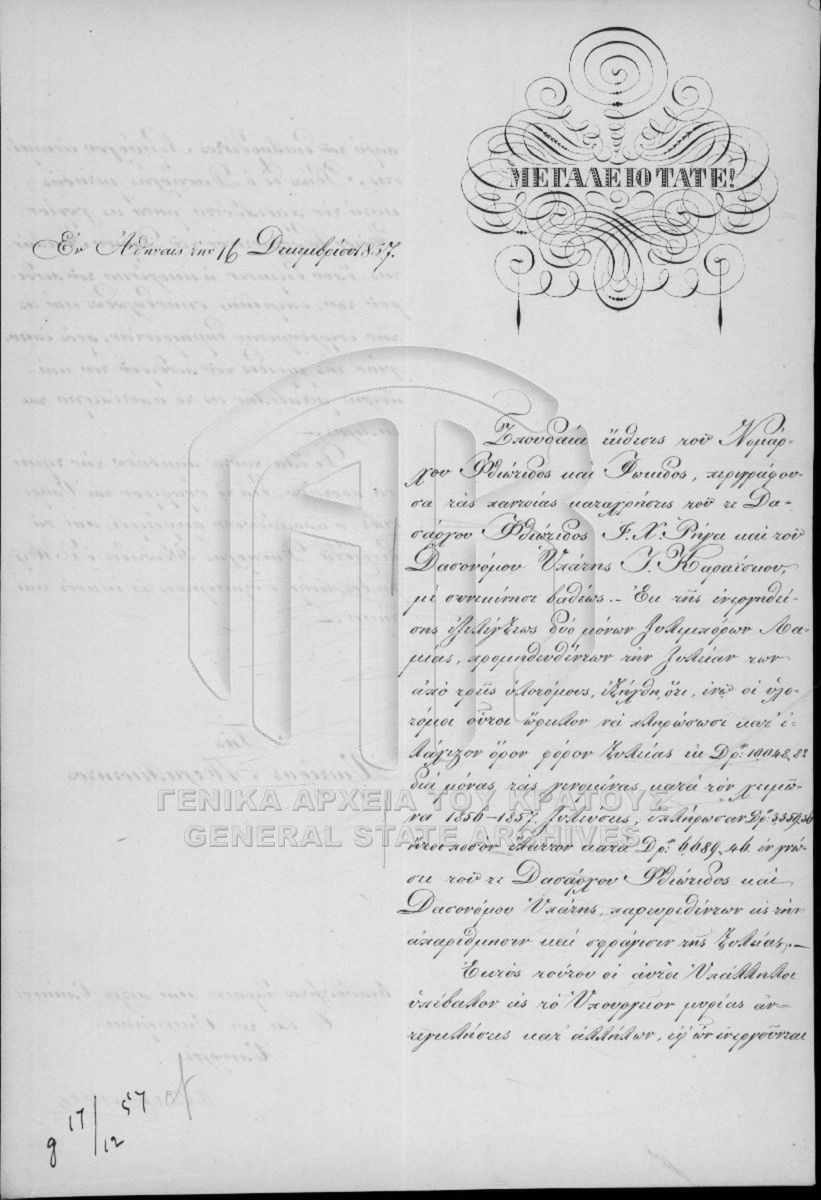 ΜΕΓΑΛΕΙΟΤΑΤΕ!
Ἐν Ἀθήναις τὴν 16 Δεκεμβρίου 1857.
Σπουδαία ἔκθεσις τοῦ Νομάρ-
χου Φθιώτιδος καὶ Φωκίδος, περιγράφου-
σα τὰς παντοίας καταχρήσεις τοῦ τε Δα-
σάρχου Φθιώτιδος Ι. Χ. Ρήγα καὶ τοῦ
Δασονόμου Ὑπάτης Ι. Καραΐσκου,
μὲ συνεκίνησε βαθέως.— Ἐκ τῆς ἐνεργηθεί-
σης ἐξελέγξεως δύο μόνων ξυλεμπόρων Λα-
μίας, προμηθευθέντων τὴν ξυλείαν των
ἀπὸ τρεῖς ὑλοτόμους, ἐξήχθη ὅτι, ἐνῷ οἱ ὑλο-
τόμοι οὗτοι ὤφειλον νὰ πληρώσωσι κατ' ἐ-
λάχιστον ὅρον φόρον ξυλείας ἐκ Δρ: 10,048,82
διὰ μόνας τὰς γενομένας κατὰ τὸν χειμῶ-
να 1856–1857 ξυλεύσεις, ἐπλήρωσαν Δρ: 3359,36
ἤτοι ποσὸν ἔλαττον κατὰ Δρ: 6,689,46 ἐν γνώ-
σει τοῦ τε Δασάρχου Φθιώτιδος καὶ
Δασονόμου Ὑπάτης, παρευρεθέντων εἰς τὴν
ἀπαρίθμησιν καὶ σφράγισιν τῆς ξυλείας.—
Ἐκτὸς τούτου οἱ αὐτοὶ Ὑπάλληλοι
ὑπέβαλον εἰς τὸ Ὑπουργεῖον μυρίας ἀν-
τεγκλήσεις κατ' ἀλλήλων, ἐφ' ὧν ἐνεργοῦνται
ΓΕΝΙΚΑ ΑΡΧΕΙΑ ΤΟΥ ΚΡΑΤΟΥΣ
GENERAL STATE ARCHIVES
g 17/12 57